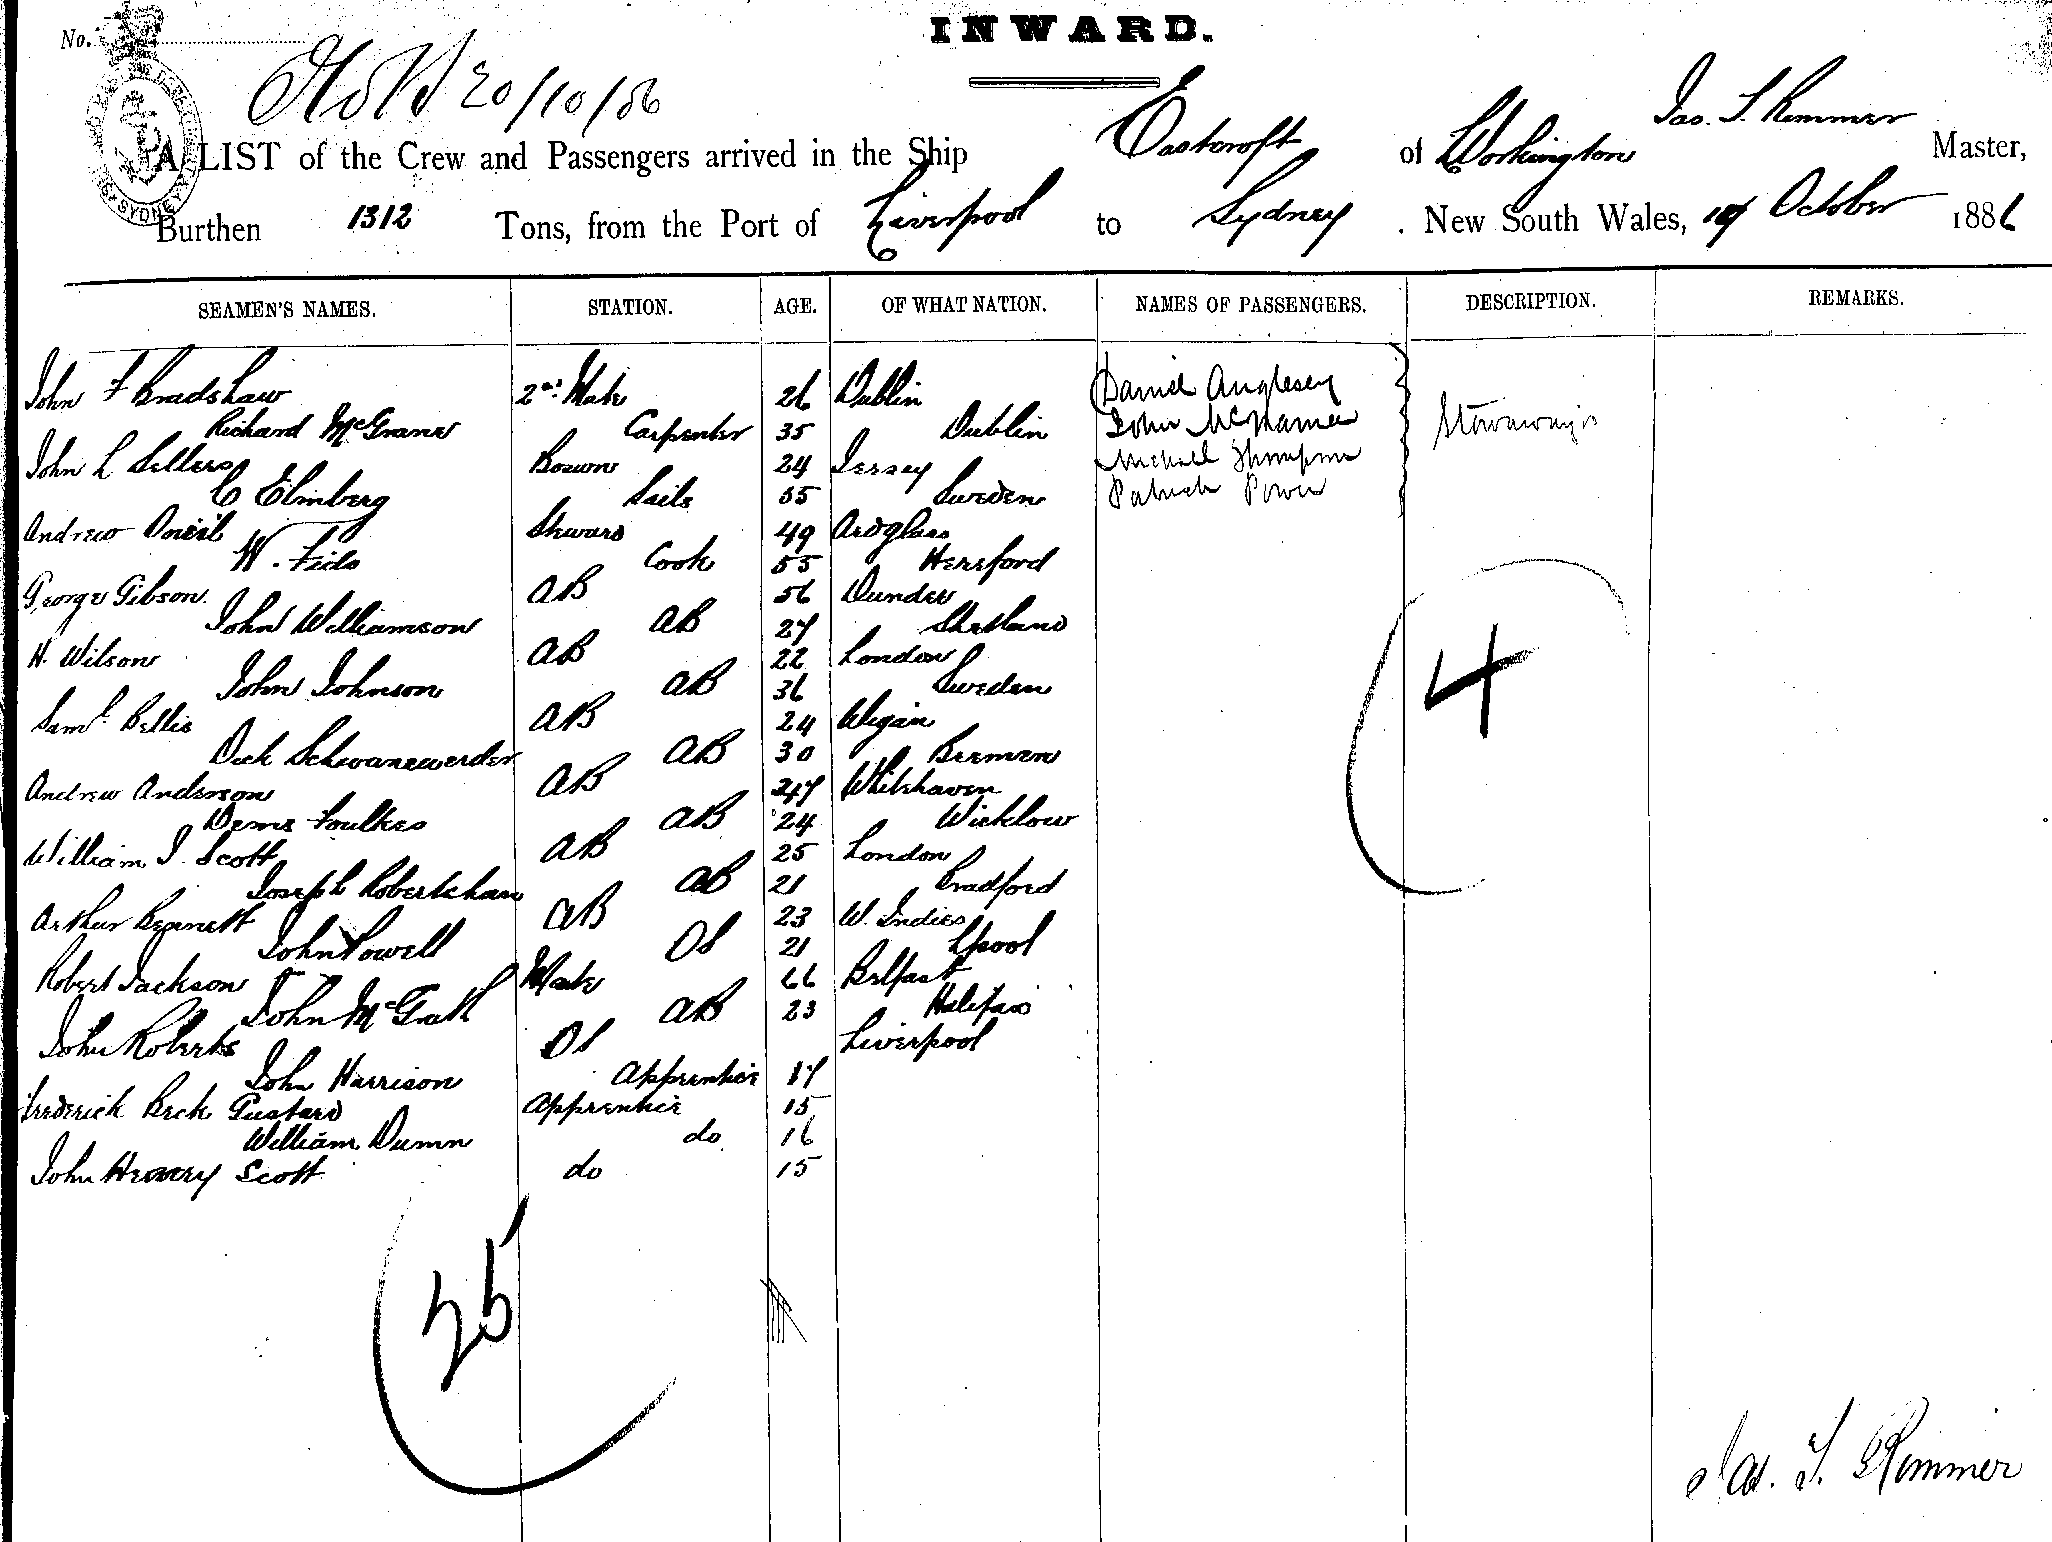 No.
INWARD.
20/10/86
Jas. T. Rimmer
A LIST of the Crew and Passengers arrived in the Ship Eastcroft of Workington Master,
Burthen 1312 Tons, from the Port of Liverpool to Sydney. New South Wales, 19 October 1886
SEAMEN'S NAMES. STATION. AGE. OF WHAT NATION. NAMES OF PASSENGERS. DESCRIPTION. REMARKS.
John F Bradshaw 2nd Mate 26 Dublin Daniel Anglesey
Richard McGrane Carpenter 35 Dublin John McNamee Stowaways
John L Sellers Bosun 24 Jersey Michael Thompson
C Elmberg Sails 55 Sweden Patrick Power
Andrew Oneil Steward 49 Ardglass
W. Cook 55 Hereford
George Gibson. AB 56 Dundee
John Williamson AB 27 Shetland
H. Wilson AB 22 London
John Johnson AB 36 Sweden
Saml. Bellis AB 24 Wigan
Dick Schwanewerder AB 30 Bremen
Andrew Anderson AB 27 Whitehaven
Foulkes AB 24 Wicklow
William J. Scott AB 25 London
Joseph Robertshaw AB 21 Bradford
Arthur Bennett AB 23 W. Indies
John Powell OS 21 Lpool
Robert Jackson Mate 66 Belfast
John McGrath AB 23 Halifax
John Roberts OS Liverpool
John Harrison Apprentice 17
Frederick Beck Gustard Apprentice 15
William Dumn do 16
John Henery Scott do 15
4
25
Jas. T. Rimmer